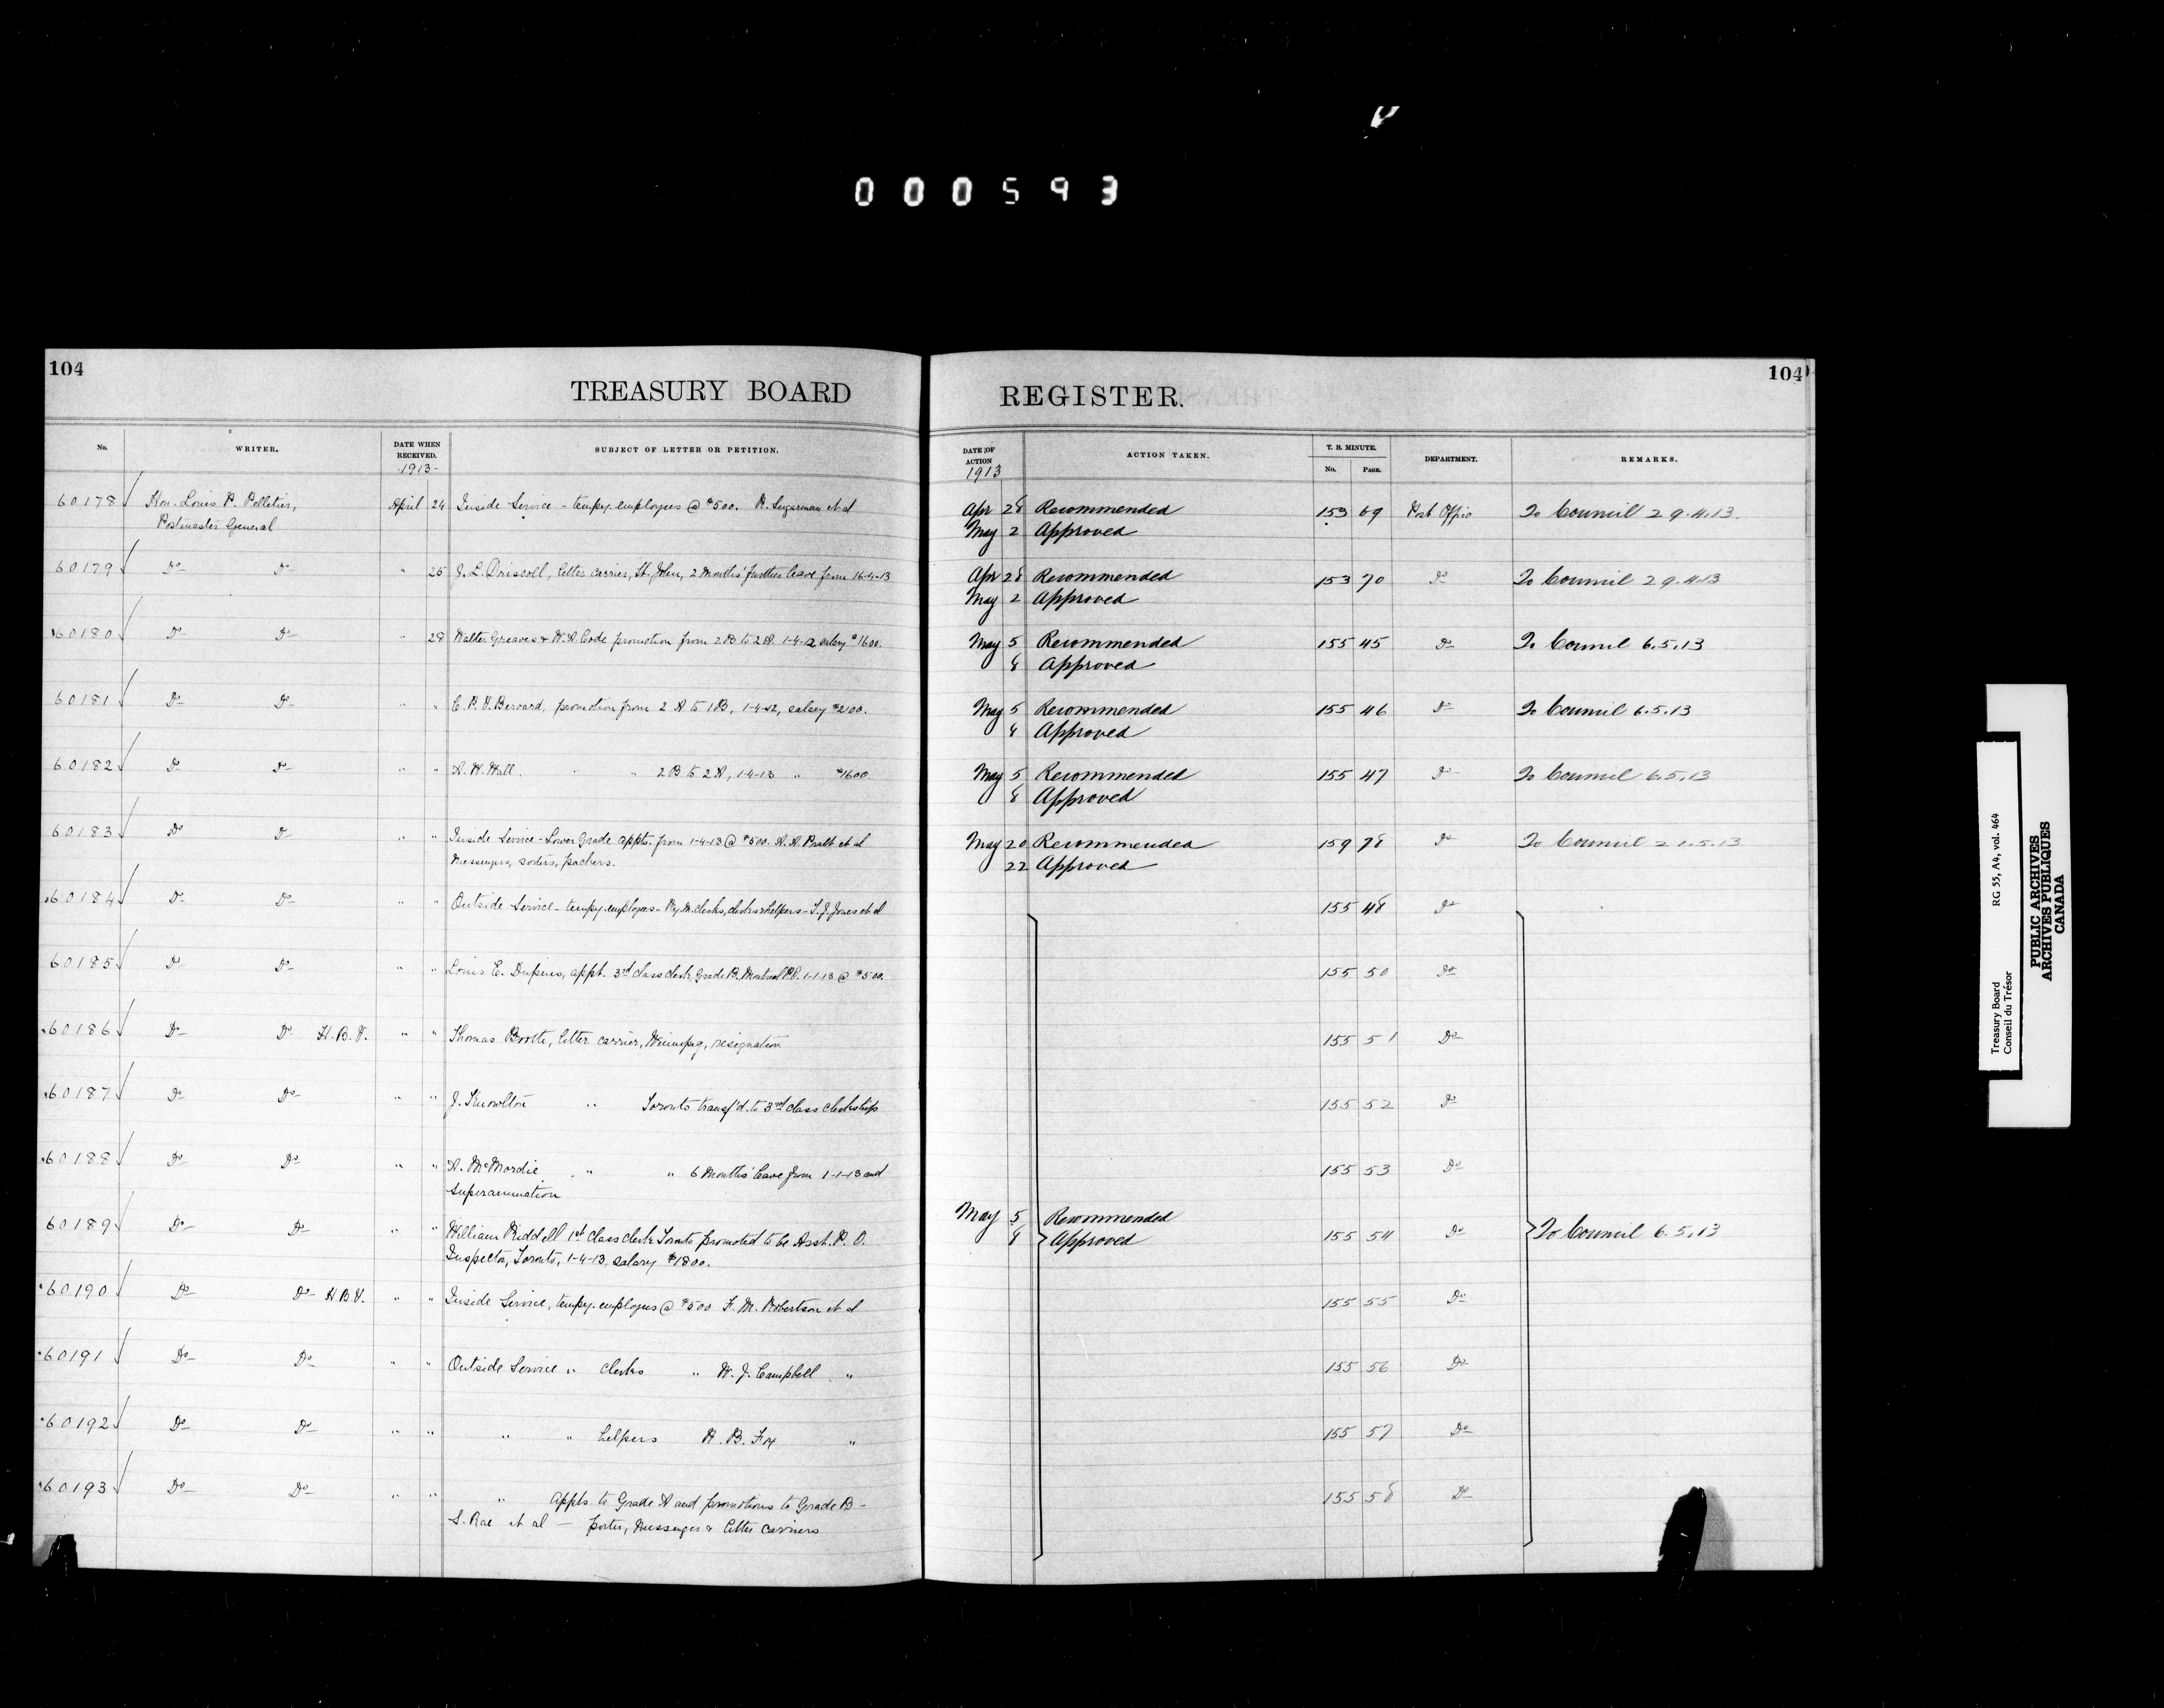 000593
104
TREASURY BOARD REGISTER.
104
No. WRITER. DATE WHEN RECEIVED. SUBJECT OF LETTER OR PETITION. DATE OF ACTION ACTION TAKEN. T. B. MINUTE. No. PAGE. DEPARTMENT. REMARKS.
-1913- 1913
60178 Hon. Louis P. Pelletier, April 24 Inside Service - tempy. employees @ $500. R. Sugarman et al Apr 28 Recommended 153 69 Post Office To Council 29.4.13.
Postmaster General May 2 Approved
60179 Do Do " 25 J. L. Driscoll, letter carrier, St. John, 2 Months' further leave from 16-4-13 Apr 28 Recommended 153 70 Do To Council 29.4.13
May 2 Approved
60180 Do Do " 28 Walter Greaves & W. A. Code promotion from 2B to 2A. 1-4-12 salary $1600. May 5 Recommended 155 45 Do To Council 6.5.13
8 Approved
60181 Do Do " " promotion from 2A to 1B, 1-4-12, salary $2100. May 5 Recommended 155 46 Do To Council 6.5.13
8 Approved
60182 Do Do " " A. W. Wall. " " 2B to 2A, 1-4-13 " $1600 May 5 Recommended 155 47 Do To Council 6.5.13
8 Approved
60183 Do Do " " Inside Service - Lower Grade appts. from 1-4-13 @ $500. A. A. Pratt et al May 20 Recommended 159 78 Do To Council 21.5.13
Messengers, sorters, packers. 22 Approved
60184 Do Do " " Outside Service - tempy. employees - Ry. M. Clerks, clerks & helpers - T. J. Jones et al 155 48 Do
60185 Do Do " " Louis E. appt. 3rd class clerk, Grade B. Montreal P.O. 1-1-13 @ $500. 155 50 Do
60186 Do Do H.B.V. " " Thomas Booth, letter carrier, Winnipeg, resignation 155 51 Do
60187 Do Do " " J. Knowlton " Toronto transf'd. to 3rd class clerkship 155 52 Do
60188 Do Do " " A. McMordie " " 6 Months' leave from 1-1-13 and 155 53 Do
Superannuation
60189 Do Do " " William Riddell 1st class clerk Toronto promoted to be Asst. P. O. May 5 Recommended 155 54 Do To Council 6.5.13
Inspector, Toronto, 1-4-13, salary $1800. 8 Approved
60190 Do Do H.B.V. " " Inside Service, tempy. employees @ $500 F. M. Robertson et al 155 55 Do
60191 Do Do " " Outside Service " clerks " W. J. Campbell " 155 56 Do
60192 Do Do " " " " helpers R. B. Fox " 155 57 Do
60193 Do Do " " " Appts. to Grade A and promotions to Grade B - 155 58 Do
S. Rae et al - porter, Messenger & letter carriers
Treasury Board RG 55, A4, vol. 464
Conseil du Trésor
PUBLIC ARCHIVES
ARCHIVES PUBLIQUES
CANADA